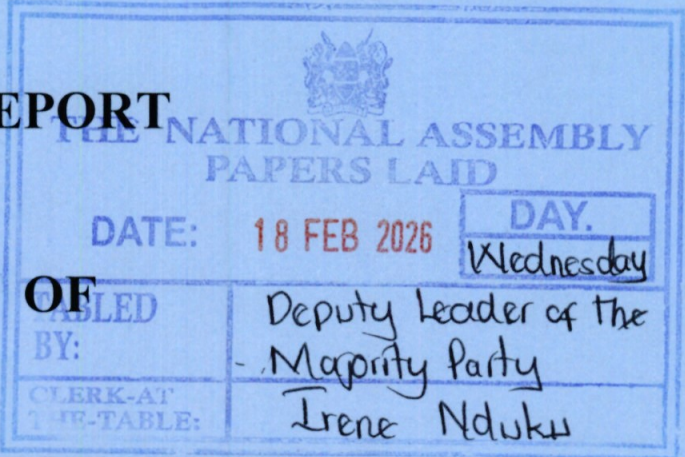 EPORT
THE NATIONAL ASSEMBLY
PAPERS LAID
DATE: 18 FEB 2026
DAY.
Wednesday
OF
TABLED BY: Deputy Leader of the Majority Party
CLERK-AT THE-TABLE: Irene Nduku